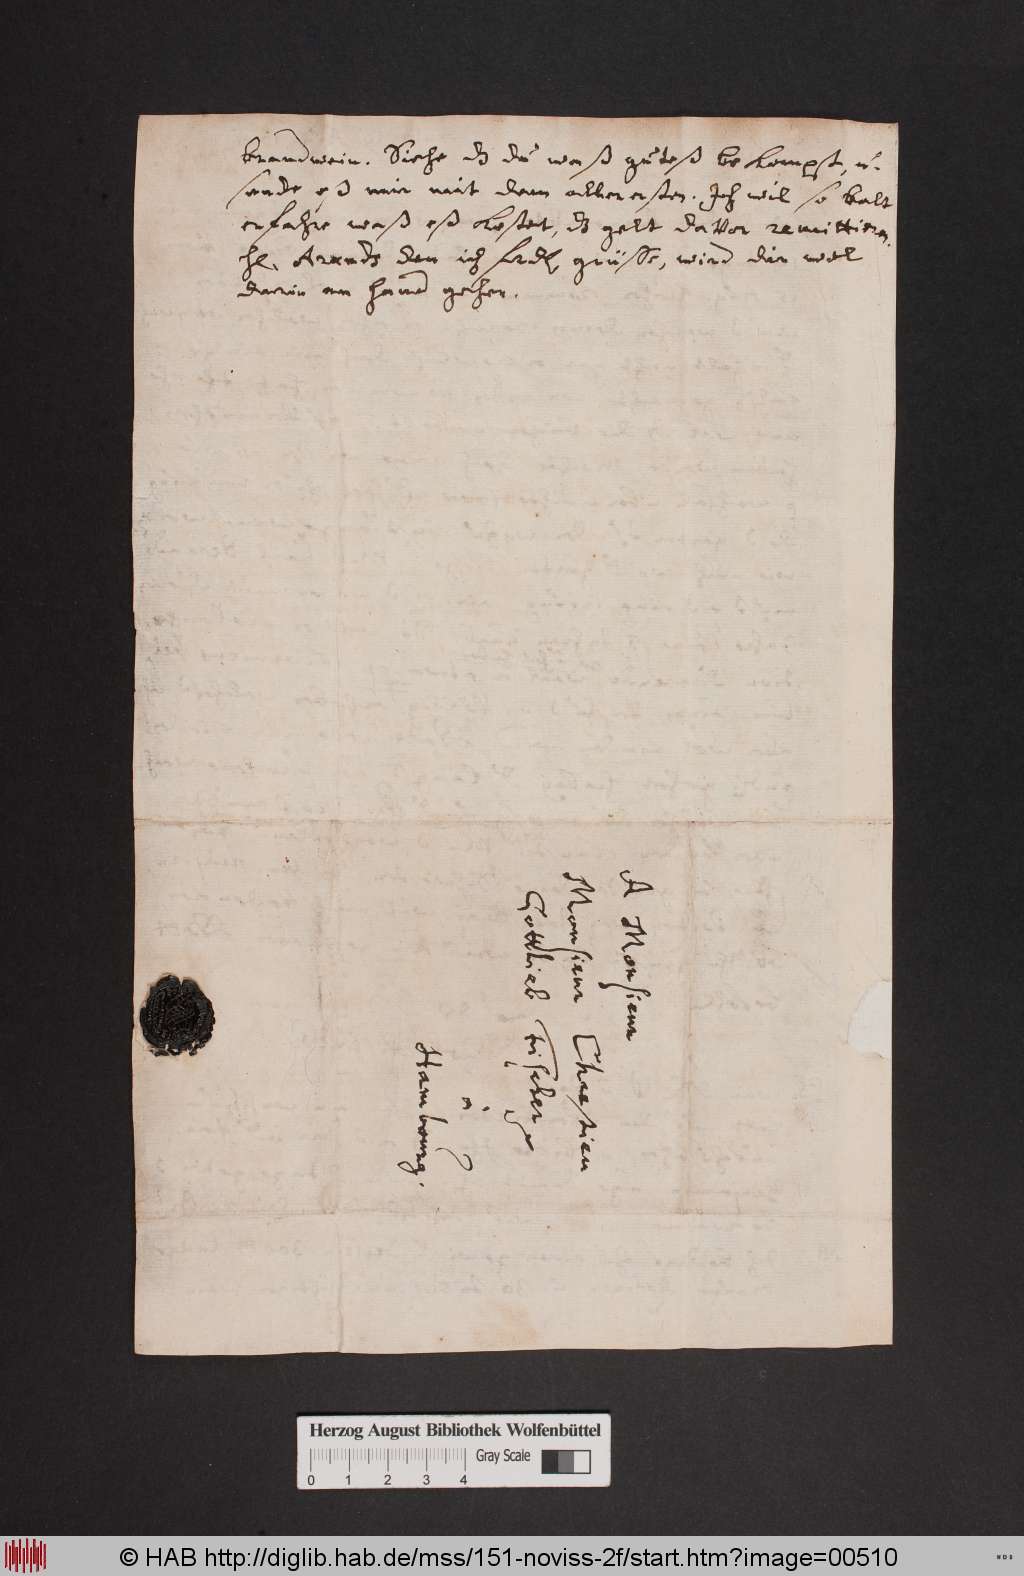 brandwein. Siehe dz du waß guteß bekompst, u.
sende eß mir mit dem allerersten. Ich wil so balt
erfahre waß eß kostet, dz gelt davor remittieren.
H. Arends den ich frdl. grüsse, wird dir wol
darin an hand gehen.
A Monsieur
Monsieur Chrestien
Gottlieb Fischer
à
Hambourg.
Herzog August Bibliothek Wolfenbüttel
Gray Scale
0 1 2 3 4
© HAB http://diglib.hab.de/mss/151-noviss-2f/start.htm?image=00510